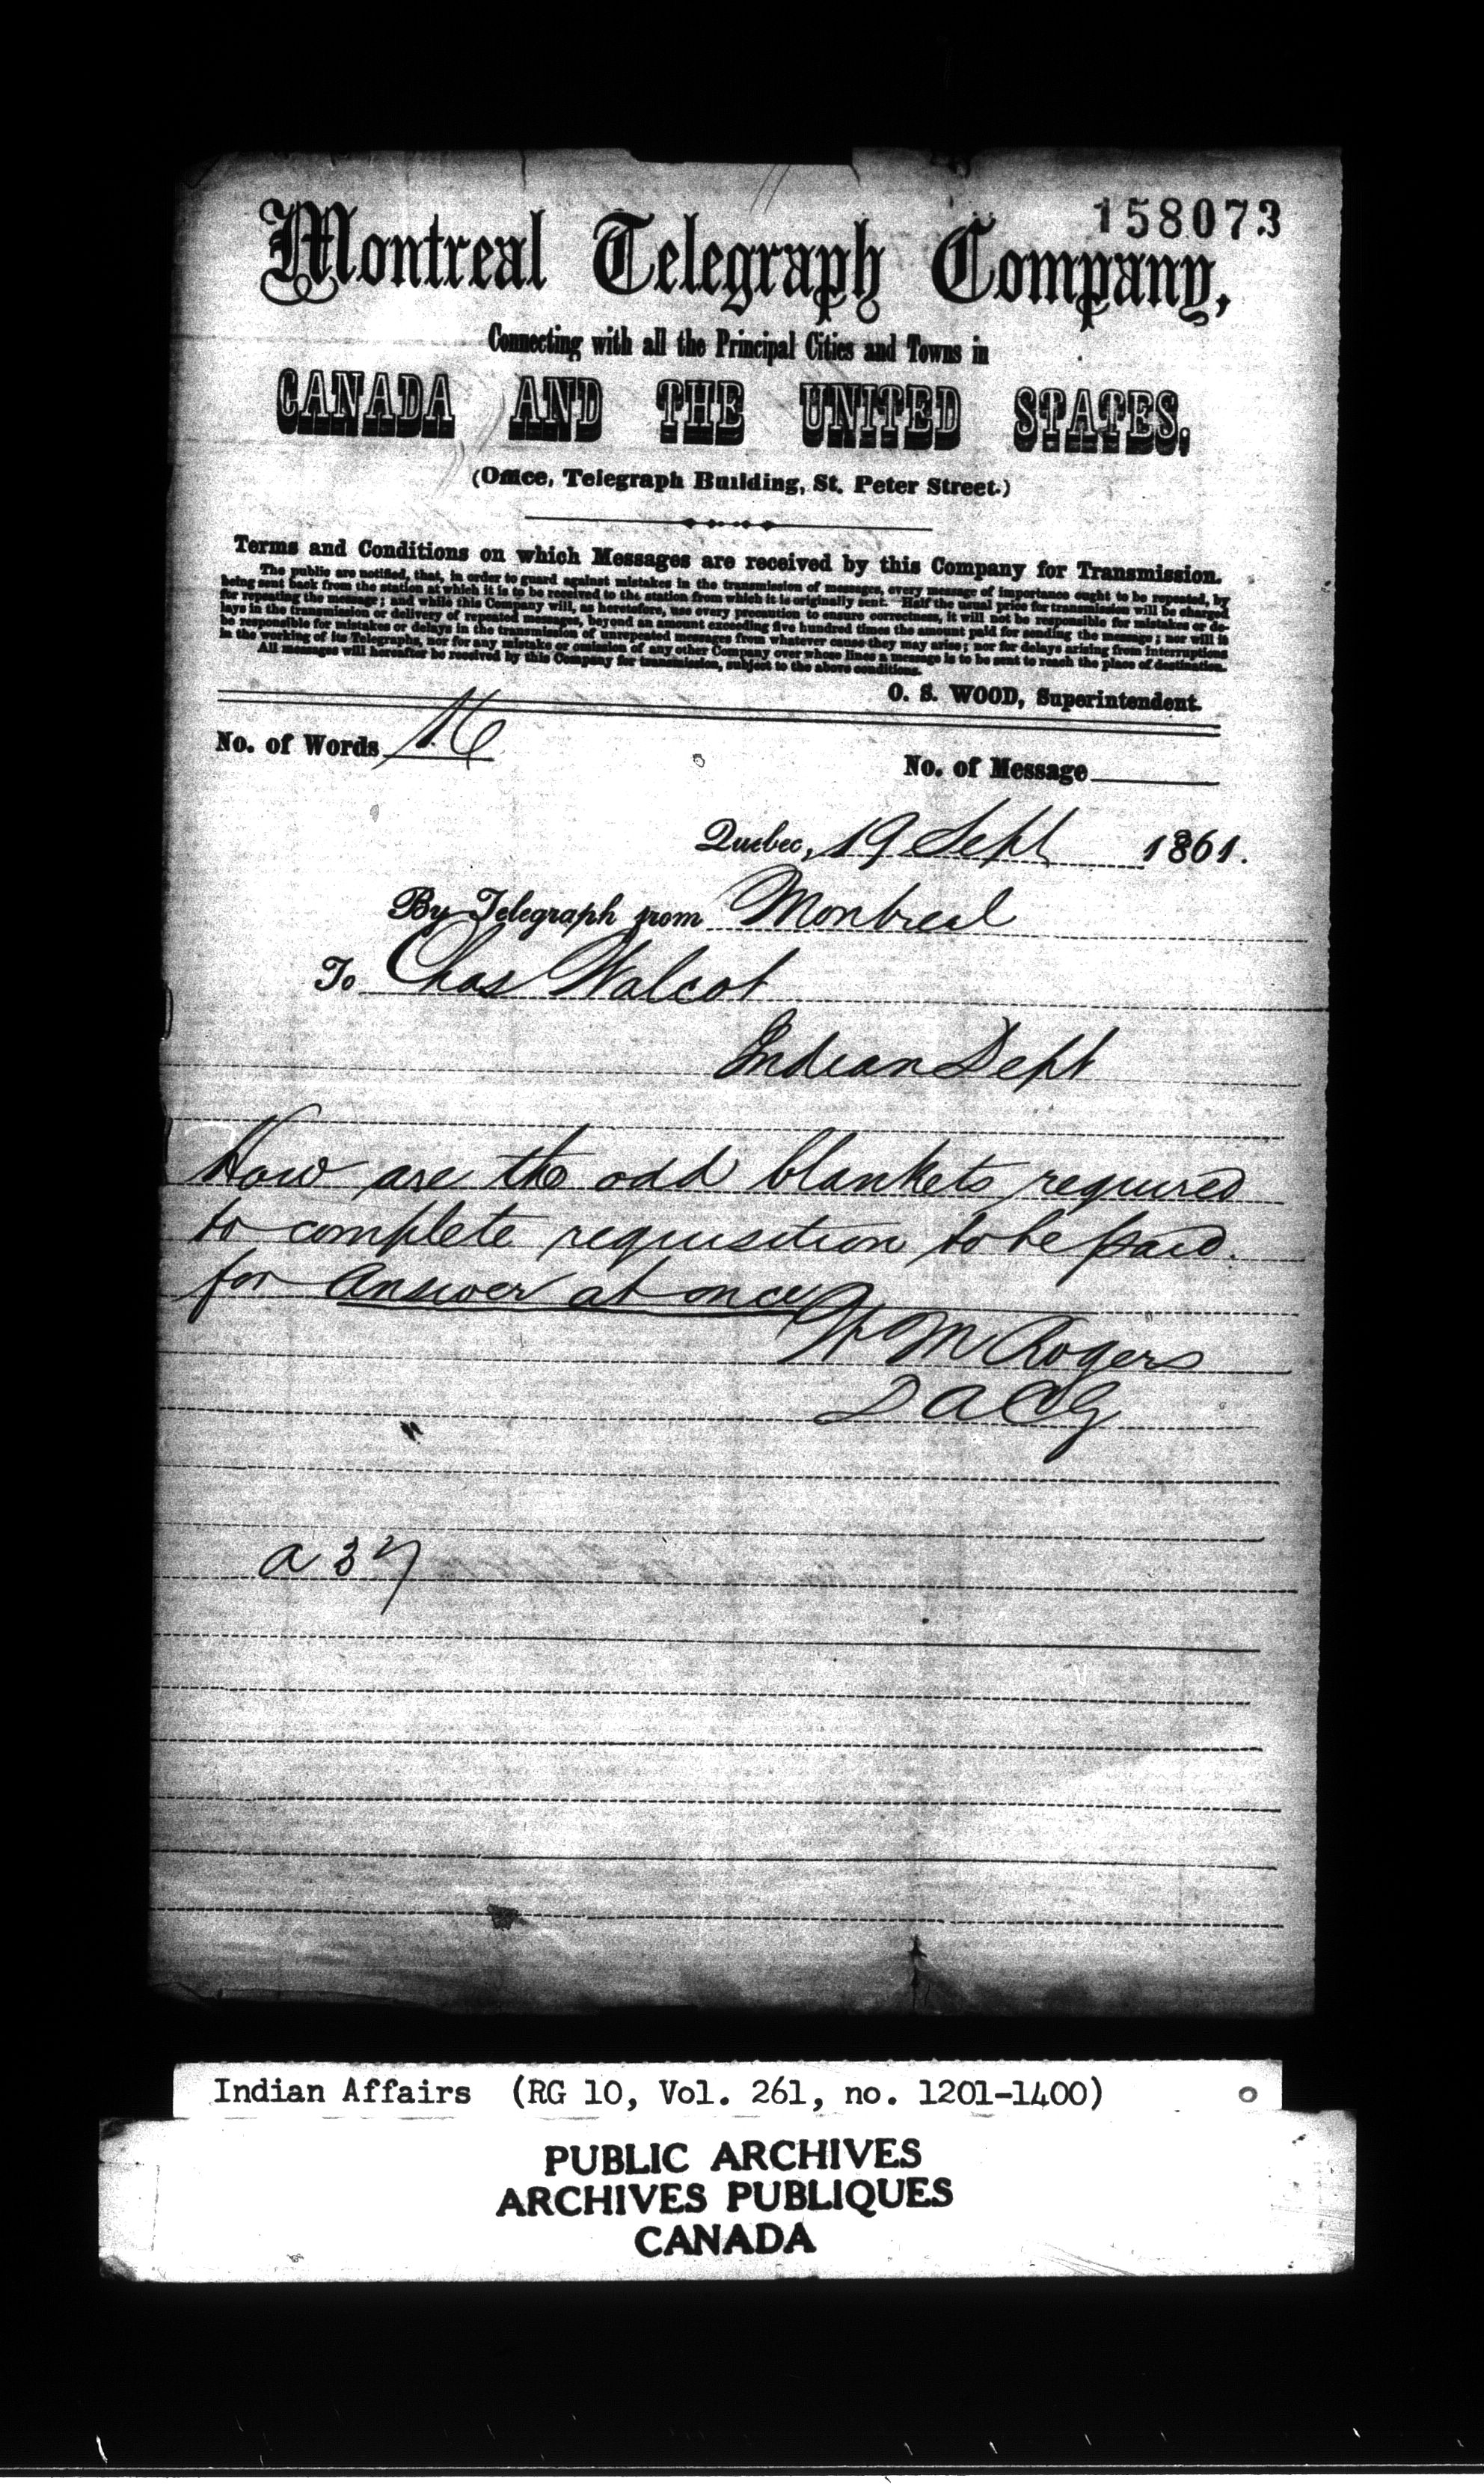 158073
Montreal Telegraph Company,
Connecting with all the Principal Cities and Towns in
CANADA AND THE UNITED STATES.
(Office, Telegraph Building, St. Peter Street.)
Terms and Conditions on which Messages are received by this Company for Transmission.
The public are notified, that, in order to guard against mistakes in the transmission of messages, every message of importance ought to be repeated, by
being sent back from the station at which it is to be received to the station from which it is originally sent. Half the usual price for transmission will be charged
for repeating the message; and while this Company will, as heretofore, use every precaution to ensure correctness, it will not be responsible for mistakes or de-
lays in the transmission or delivery of repeated messages, beyond an amount exceeding five hundred times the amount paid for sending the message; nor will it
be responsible for mistakes or delays in the transmission of unrepeated messages from whatever cause they may arise; nor for delays arising from interruptions
in the working of its Telegraphs, nor for any mistake or omission of any other Company over whose lines a message is to be sent to reach the place of destination.
All messages will hereafter be received by this Company for transmission, subject to the above conditions.
O. S. WOOD, Superintendent.
No. of Words 16
No. of Message
Quebec, 19 Sept 1861.
By Telegraph from Montreal
To Chas Walcot
Indian Dept
How are the odd blankets required
to complete requisition to be paid
for Answer at once
W M Rogers
D A C G
a 37
Indian Affairs (RG 10, Vol. 261, no. 1201-1400)
PUBLIC ARCHIVES
ARCHIVES PUBLIQUES
CANADA